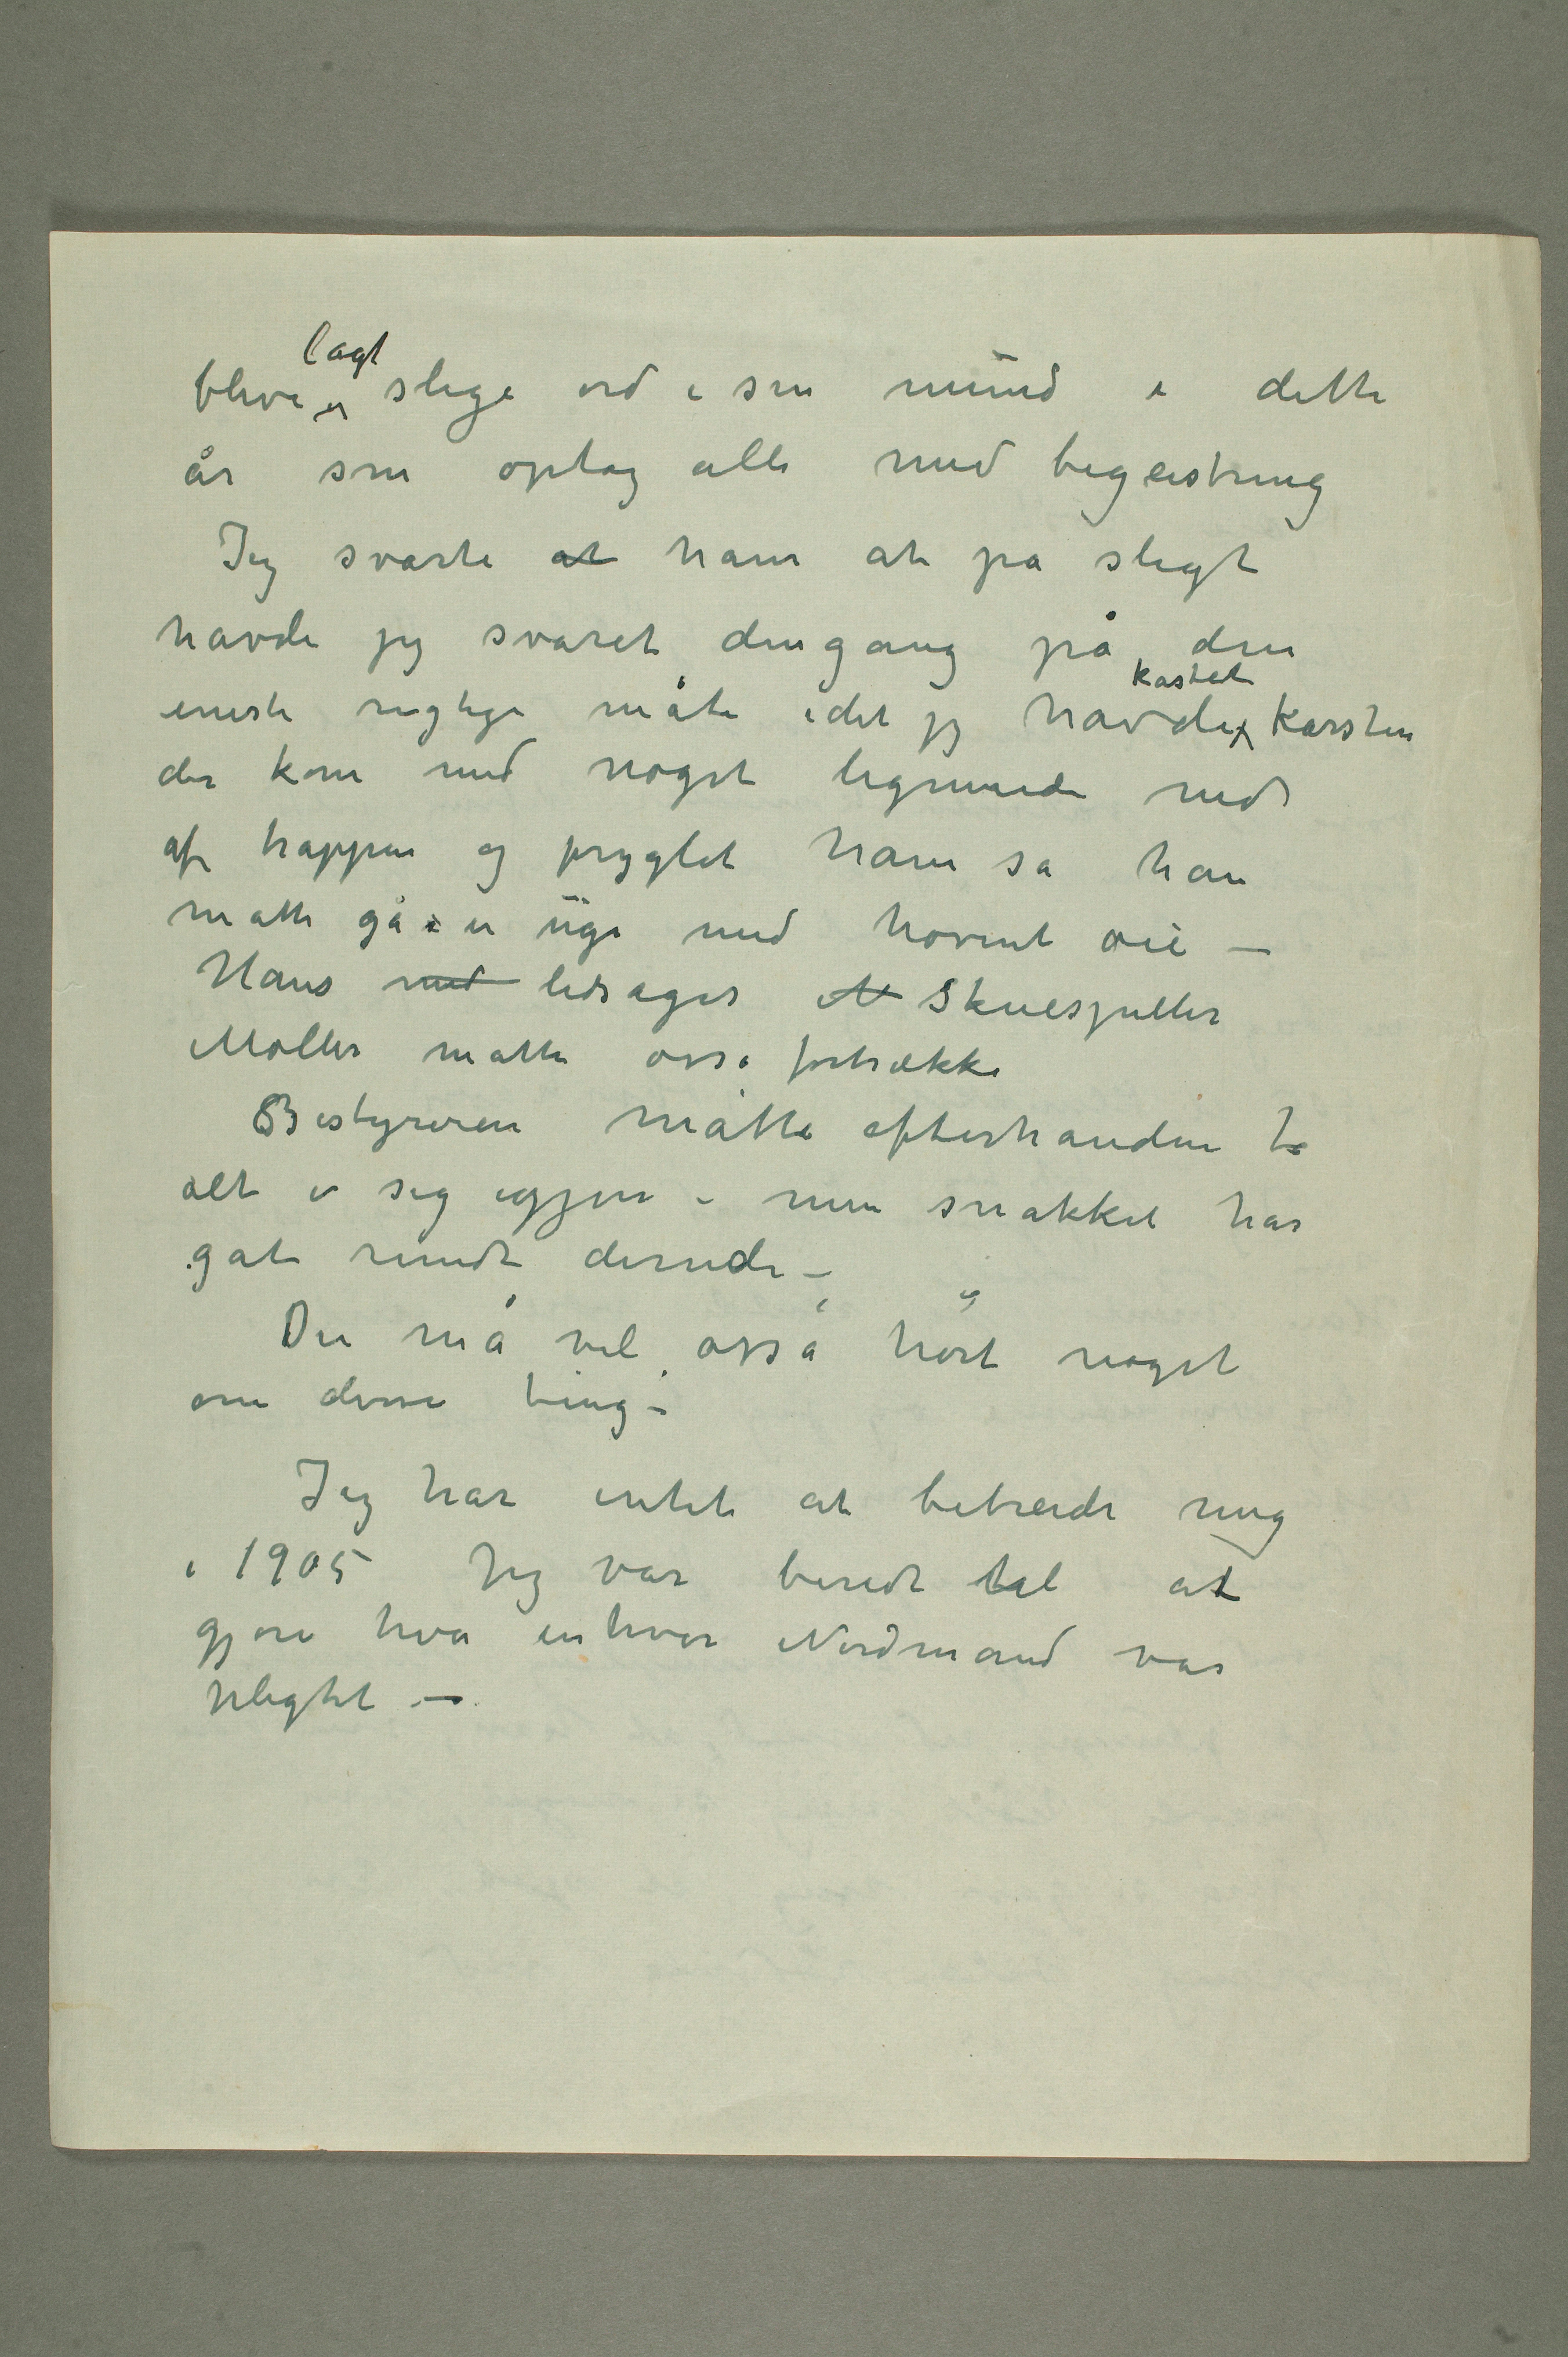 blive lagt slige ord i sin mund i dette
år som optog alle med begeistring
Jeg svarte at ham at på sligt
havde jeg svaret dengang på den
eneste rigtige måte idet jeg havde kastet Karsten
der kom med noget lignende ned
af trappen og pryglet ham så han
måtte gå i en uge med hovent øie –
Hans med ledsager N Skuespiller
Møller måtte også fortrække
Bestyreren måtte efterhånden ta
alt i sig igjen – men snakket har
gåt rundt dernede –
Du må vel også hørt noget
om disse ting –
Jeg har intet at bebreide mig
i 1905 Jeg var beredt til at
gjøre hva enhver Nordmand var
pligtet –